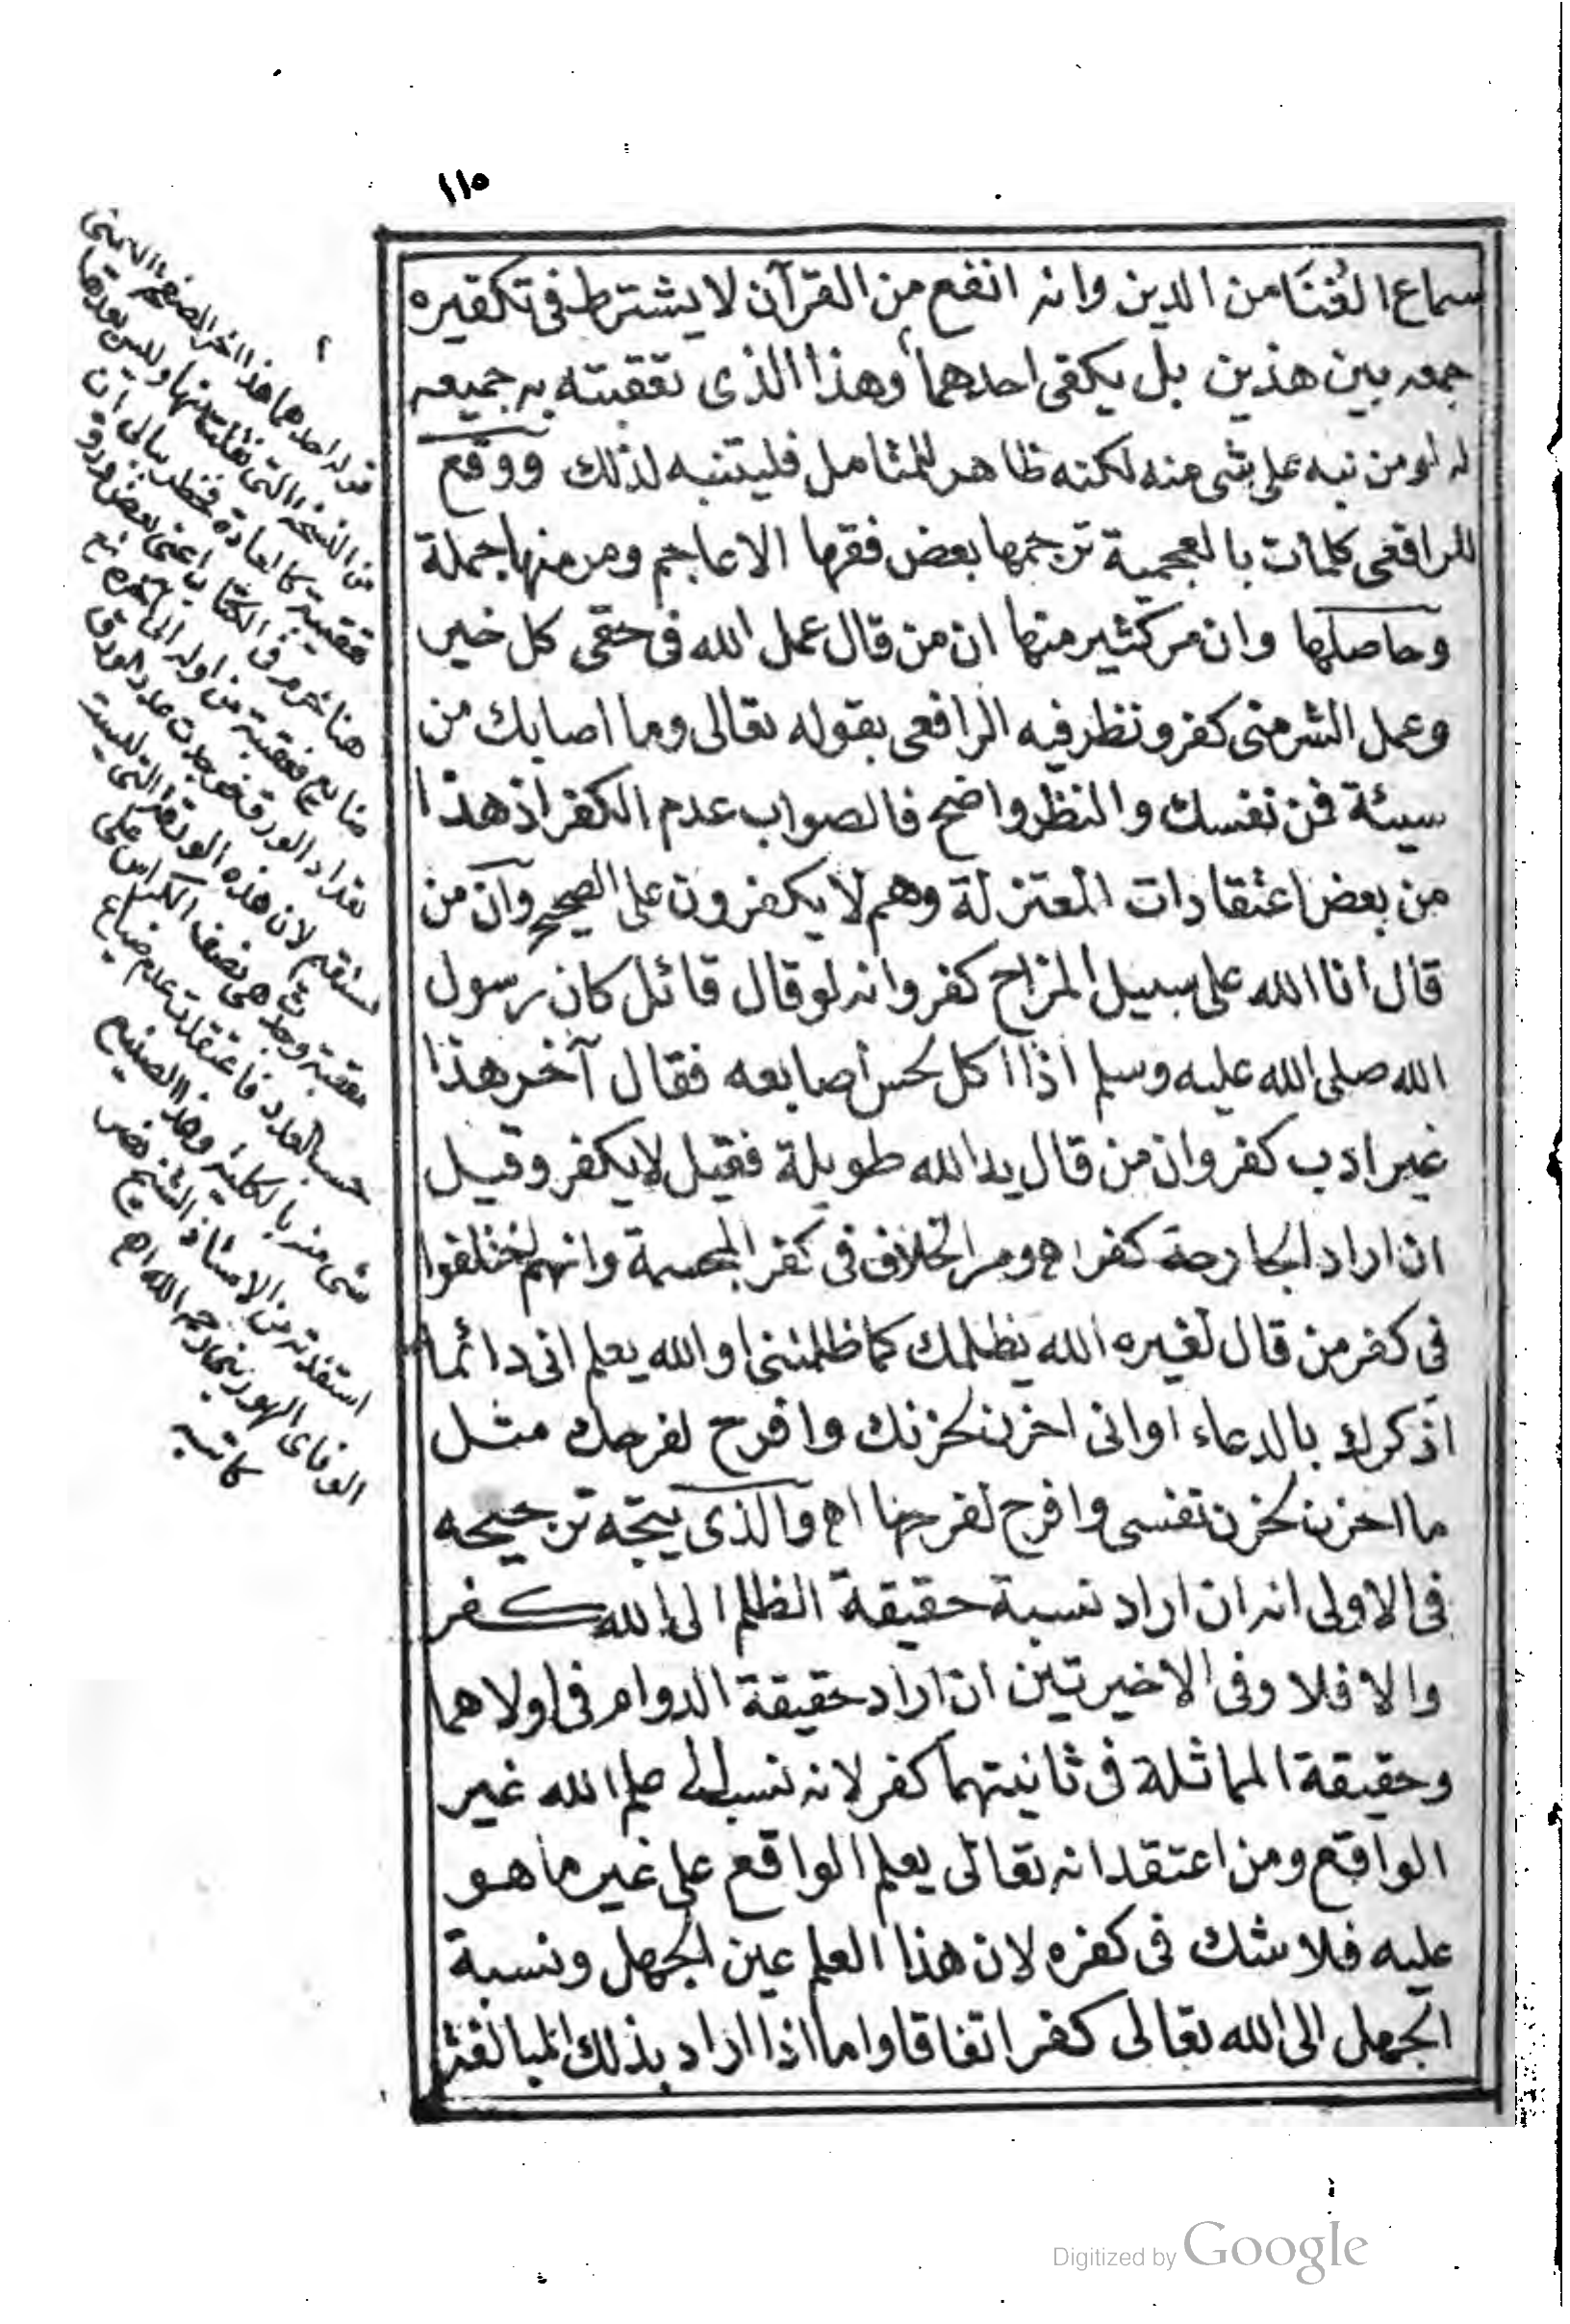 ١١٥
سماع الغنا من الدين وانه انفع من القرآن لا يشترط فى تكفيره
جمعه بين هذين بل يكفى احدهما وهذا الذى تعقبته به جميعه
لم ار من نبه على شى منه لكنه ظاهر للمتامل فليتنبه لذلك ووقع
للرافعى كلمات بالعجمية ترجمها بعض فقها الاعاجم ومر منها جملة
وحاصلها وان مر كثير منها ان من قال عمل الله فى حقى كل خير
وعمل الشر منى كفر ونظر فيه الرافعى بقوله تعالى وما اصابك من
سيئة فمن نفسك والنظر واضح فالصواب عدم الكفر اذ هذا
من بعض اعتقادات المعتزلة وهم لا يكفرون على الصحيح وان من
قال انا الله على سبيل المزاح كفر وانه لو قال قائل كان رسول
الله صلى الله عليه وسلم اذا اكل لحس اصابعه فقال آخر هذا
غير ادب كفر وان من قال يد الله طويلة فقيل لا يكفر وقيل
ان اراد الجارحة كفر اه ومر الخلاف فى كفر المجسمة وانهم اختلفوا
فى كفر من قال لغيره الله يظلمك كما ظلمتنى او الله يعلم انى دائما
اذكرك بالدعاء او انى احزن بحزنك وافرح لفرحك مثل
ما احزن بحزن نفسى وافرح لفرحها اه والذى يتجه ترجيحه
فى الاولى انه ان اراد نسبة حقيقة الظلم الى الله كفر
والا فلا وفى الاخيرتين ان اراد حقيقة الدوام فى اولاهما
وحقيقة المماثلة فى ثانيتهما كفر لانه نسب الى علم الله غير
الواقع ومن اعتقد انه تعالى يعلم الواقع على غير ما هو
عليه فلا شك فى كفره لان هذا العلم عين الجهل ونسبة
الجهل الى الله تعالى كفر اتفاقا واما اذا اراد بذلك المبالغة
قوله احدهما هذا اخر الصفحة التى
من النسخة التى نقلت منها وليس بعدها
تعقيبة كالعادة فخطر ببالى ان
هنا خرم فى الكتاب اعنى بعض ورق
ضايع
تعداد الورق فوجدت عدد الورق
مستقيم لان هذه الورقة التى ليست
معقبة وجد هى نصف الكراس على
حسب العدد فاعتقدت عدم ضياع
شى منه بالكلية وهذا الصنيع
استفدته من الاستاذ الشيخ نصر
الوفاى الهورينى رحمه الله اه
كاتبه
Digitized by Google